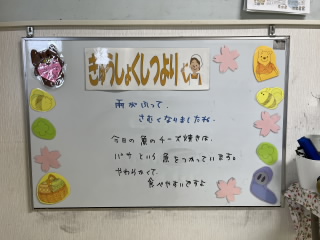 きゅうしょくしつより
雨がふって、
さむくなりましたね。
今日の魚のチーズ焼きは、
バサという魚をつかっています。
やわらかくて、
食べやすいですよ